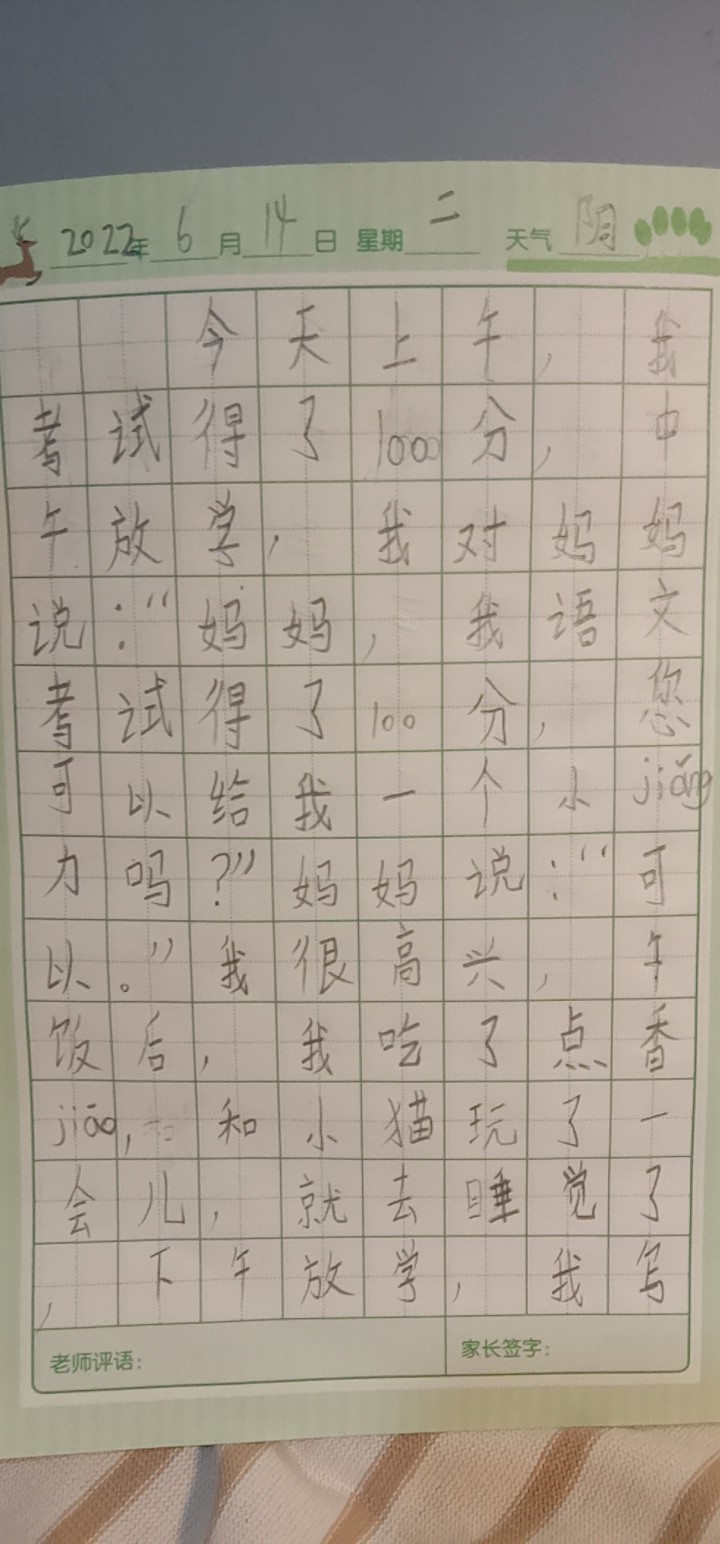 2022年 6月14日 星期二 天气 阴
今天上午，我
考试得了1000分，中
午放学，我对妈妈
说：“妈妈，我语文
考试得了100分，您
可以给我一个小jiǎng
力吗？”妈妈说：“可
以。”我很高兴，午
饭后，我吃了点香
jiāo，和小猫玩了一
会儿，就去睡觉了
，下午放学，我写
老师评语： 家长签字：